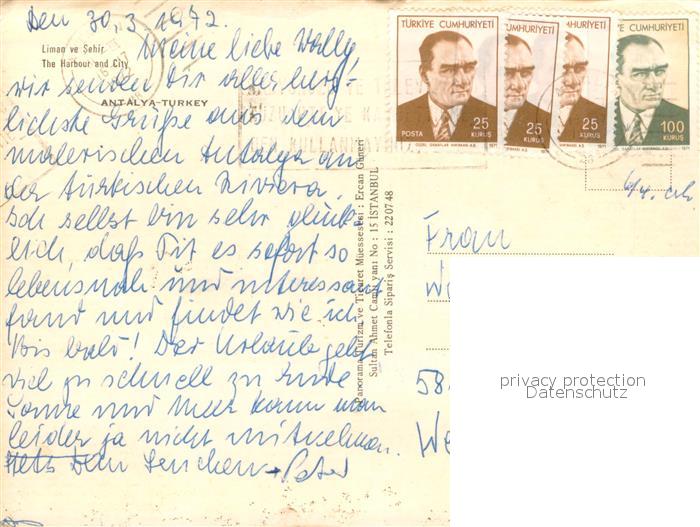 Den 30.3.1972.
Liman ve Şehir
The Harbour and City
ANTALYA-TURKEY
Meine liebe Wally,
wir senden Dir allerherz-
lichste Grüße aus dem
malerischen Antalya an
der türkischen Riviera.
Ich selbst bin sehr glück-
lich, daß Pit es sofort so
lebensnah und interessant
fand und findet wie ich
Bis bald! Der Urlaub geht
viel zu schnell zu Ende
Sonne und Meer kann man
leider ja nicht mitnehmen.
Stets Dein Lenchen + Peter
Panorama Turizm ve Ticaret Müessesesi : Ercan Güneri
Sultan Ahmet Camii yanı No : 15 İSTANBUL
Telefonla Sipariş Servisi : 22 07 48
TÜRKİYE CUMHURİYETİ
POSTA
25
KURUŞ
25
KURUŞ
25
KURUŞ
TÜRKİYE CUMHURİYETİ
100
KURUŞ
1971
Frau
58
We
privacy protection
Datenschutz